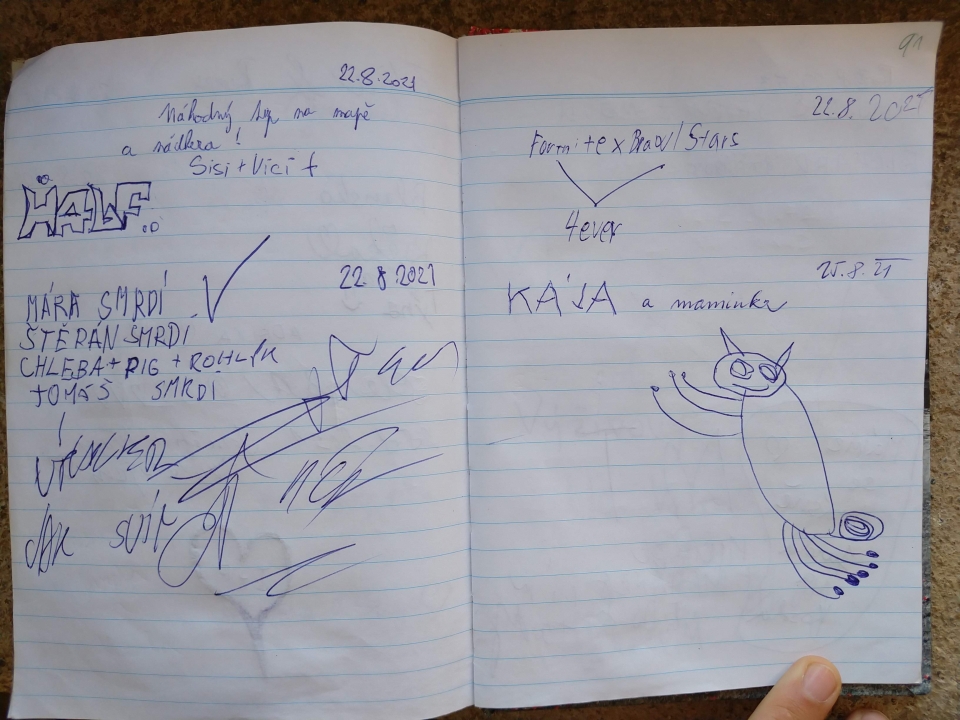 22.8.2021
Náhodný tip na mapě
a nádhera!
Sisi + Vici
HALF
:D
22.8.2021
MÁRA SMRDÍ
ŠTĚPÁN SMRDI
CHLEBA + PIG + ROHLÍK
TOMÁŠ SMRDÍ
JAK
91
22.8.2021
Fortnite x Brawl Stars
4ever
25.8.21
KÁJA a maminka